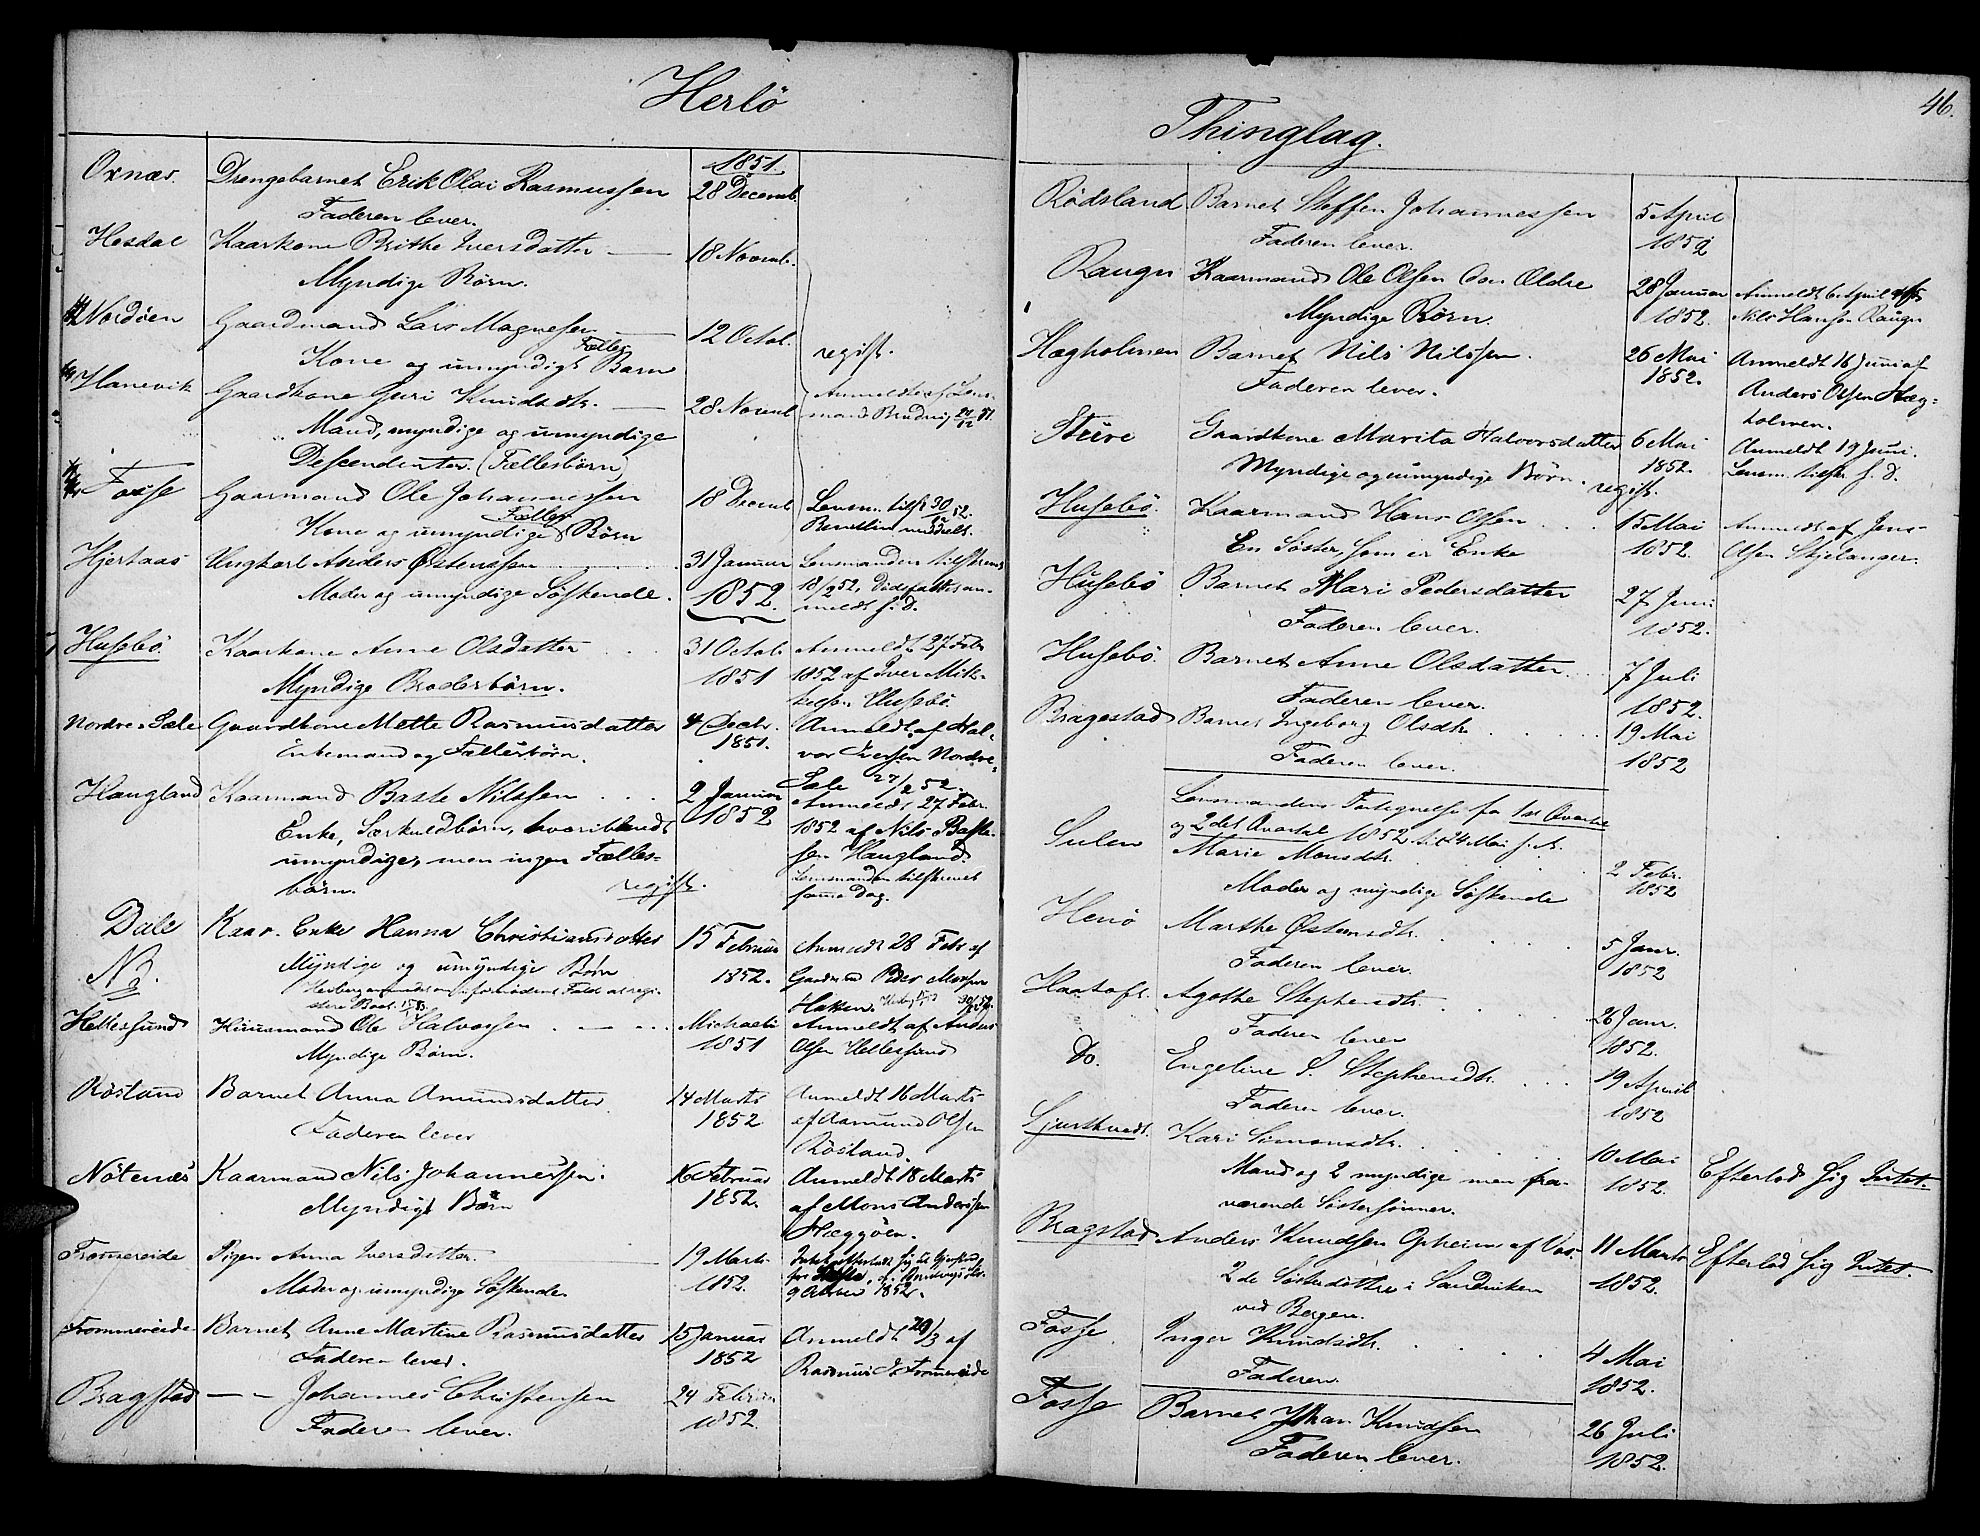 Herlö
1851.
Oxnæs. Drengebarnet Erik Olai Rasmussen 28 Decemb.
Faderen lever.
Hesdal Kaarkone Brithe Iversdatter 18 Novemb.
Myndige Börn.
Nordöen Gaardmand Lars Magnesen 12 Octob.
Kone og umyndigt Fælles Barn regist.
Hanevik Gaardkone Guri Knudsdtr. 28 Novemb
Mand, myndige og umyndige
Descendenter. (Fællesbörn)
Fosse Gaarmand Ole Johannessen 18 Decemb Lensm. tilsk 30/ 52.
Kone og umyndige Fælles Börn
Hjertaas Ungkarl Anders Østenssen 31 Januar Lensmanden tilskrevet
Moder og umyndige Söskende. 1852. 18/2 52, Dödsfaldet an-
meldt s. D.
Husebö. Kaarkone Anne Olsdatter 31 Octob Anmeldt 27 Febr
Myndige Broderbörn. 1851 1852 af Iver Mik-
kelsen Husebö.
Nordre Sæle Gaardkone Mette Rasmusdatter 4 Decbr. Anmeldt af Hal-
Enkemand og Fællesbörn. 1851. vor Iversen Nordre
Sæle 27/2 52.
Haugland Kaarmand Baste Nilssen 2 Januar Anmeldt 27 Febr.
Enke, Særkuldbörn, hvoriblandt 1852 1852 af Nils Baste-
umyndige, men ingen Fælles- sen Haugland.
börn. regist. Lensmanden tilskrevet
samme Dag.
Dale Kaar-Enke Hanna Christiansdatter 15 Februar Anmeldt 28 Febr af
NB. Myndige og umyndige Börn 1852. Gaardmd Peder
Hellesund Huusmand Ole Halvorsen Michaeli Anmeldt af Anders
Myndige Börn. 1851 Olsen Hellesund
Rösland Barnet Anna Amundsdatter 14 Marts Anmeldt 16 Marts
Faderen lever 1852 af Aamund Olsen
Rösland.
Nötenæs Kaarmand Nils Johannessen. 16 Februar Anmeldt 18 Marts
Myndigt Barn 1852. af Mons Anderssen
Hæggöen.
Frommereide Pigen Anna Iversdatter 19 Marts
Moder og umyndige Söskende 1852.
Frommereide Barnet Anne Martine Rasmusdatter 15 Januar Anmeldt 29/3 af
Faderen lever. 1852 Rasmus Frommereide
Bragstad — — Johannes Christensen 24 Februar
Faderen lever. 1852.
46.
Thinglag.
Rödsland Barnet Steffen Johannessen 5 April
Faderen lever. 1852
Raugn Kaarmand Ole Olsen den Ældre 28 Januar Anmeldt 6 April af
Myndige Börn. 1852. Nils Hansen Raugn
Hægholmen Barnet Nils Nilssen. 26 Mai Anmeldt 16 Juni af
Faderen lever. 1852. Anders Olsen Hæg-
holmen.
Sture Gaardkone Marita Halvorsdatter 6 Mai Anmeldt 19 Juni.
Myndige og umyndige Börn. regist. 1852. Lensm. tilskr s. D.
Husebö. Kaarmand Hans Olsen 15 Mai Anmeldt af Jens
En Söster, som er Enke 1852. Olsen Skjelanger.
Husebö Barnet Mari Pedersdatter 27 Juni
Faderen lever. 1852.
Husebö. Barnet Anne Olsdatter 7 Juli
Faderen lever. 1852.
Bragestad Barnet Ingeborg Olsdtr 19 Mai
Faderen lever. 1852
Lensmandens Fortegnelse fra 1ste Qvartal
og 2det Qvartal 1852 til 24 Mai s. A.
Sulen Marie Monsdtr. 2 Febr.
Moder og myndige Söskende 1852
Herö Marthe Østensdtr. 5 Janr.
Faderen lever. 1852
Haatoft. Agothe Stephensdtr. 26 Janr.
Faderen lever 1852.
Do. Engeline S. Stephensdtr. 19 April
Faderen lever. 1852
Gjertkvedt. Kari Simonsdtr. 10 Mai Efterlod sig Intet.
Mand og 2 myndige men fra- 1852.
værende Söstersönner.
Bragstad Anders Knudsen Opheim af Vos. 11 Marts Efterlod sig Intet.
2de Sösterdöttre i Sandviken 1852.
ved Bergen.
Fosse Inger Knudsdtr. 4 Mai
Faderen. 1852.
Fosse Barnet Johan Knudsen 26 Juli
Faderen lever. 1852.